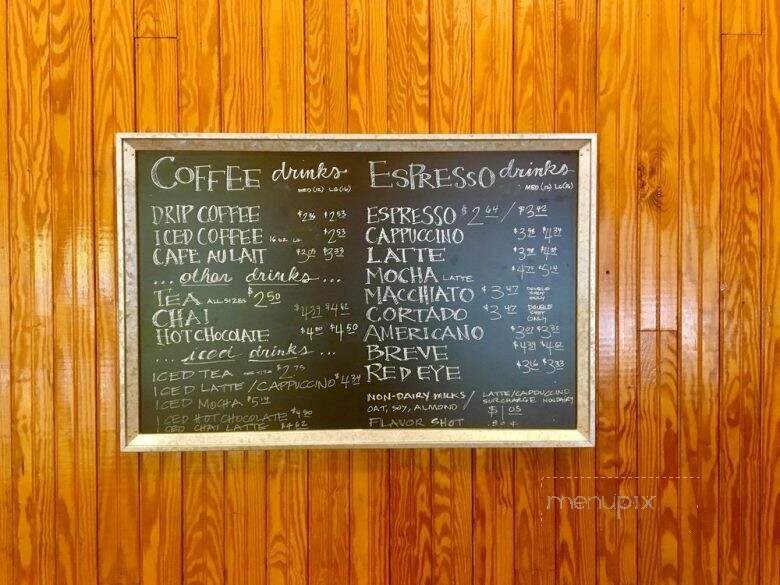 COFFEE drinks
MED (12) LG (16)
DRIP COFFEE
ICED COFFEE 16 oz $2.53
CAFE AU LAIT $3.33
... other drinks ...
TEA ALL SIZES $2.50
CHAI $4.62
HOT CHOCOLATE $4.50
... iced drinks ...
ICED TEA $2.75
ICED LATTE / CAPPUCCINO $4.34
ICED MOCHA $5.14
ICED HOT CHOCOLATE $4.80
ICED CHAI LATTE $4.62
ESPRESSO drinks
MED (12) LG (16)
ESPRESSO $2.64 / $3.42
CAPPUCCINO $4.34
LATTE
MOCHA LATTE $5.14
MACCHIATO $3.47 DOUBLE SHOT ONLY
CORTADO $3.47 DOUBLE SHOT ONLY
AMERICANO
BREVE $4.62
RED EYE $3.16 $3.33
NON-DAIRY MILKS /
OAT, SOY, ALMOND
LATTE/CAPPUCCINO
SURCHARGE NONDAIRY
$1.05
FLAVOR SHOT .80¢
menupix